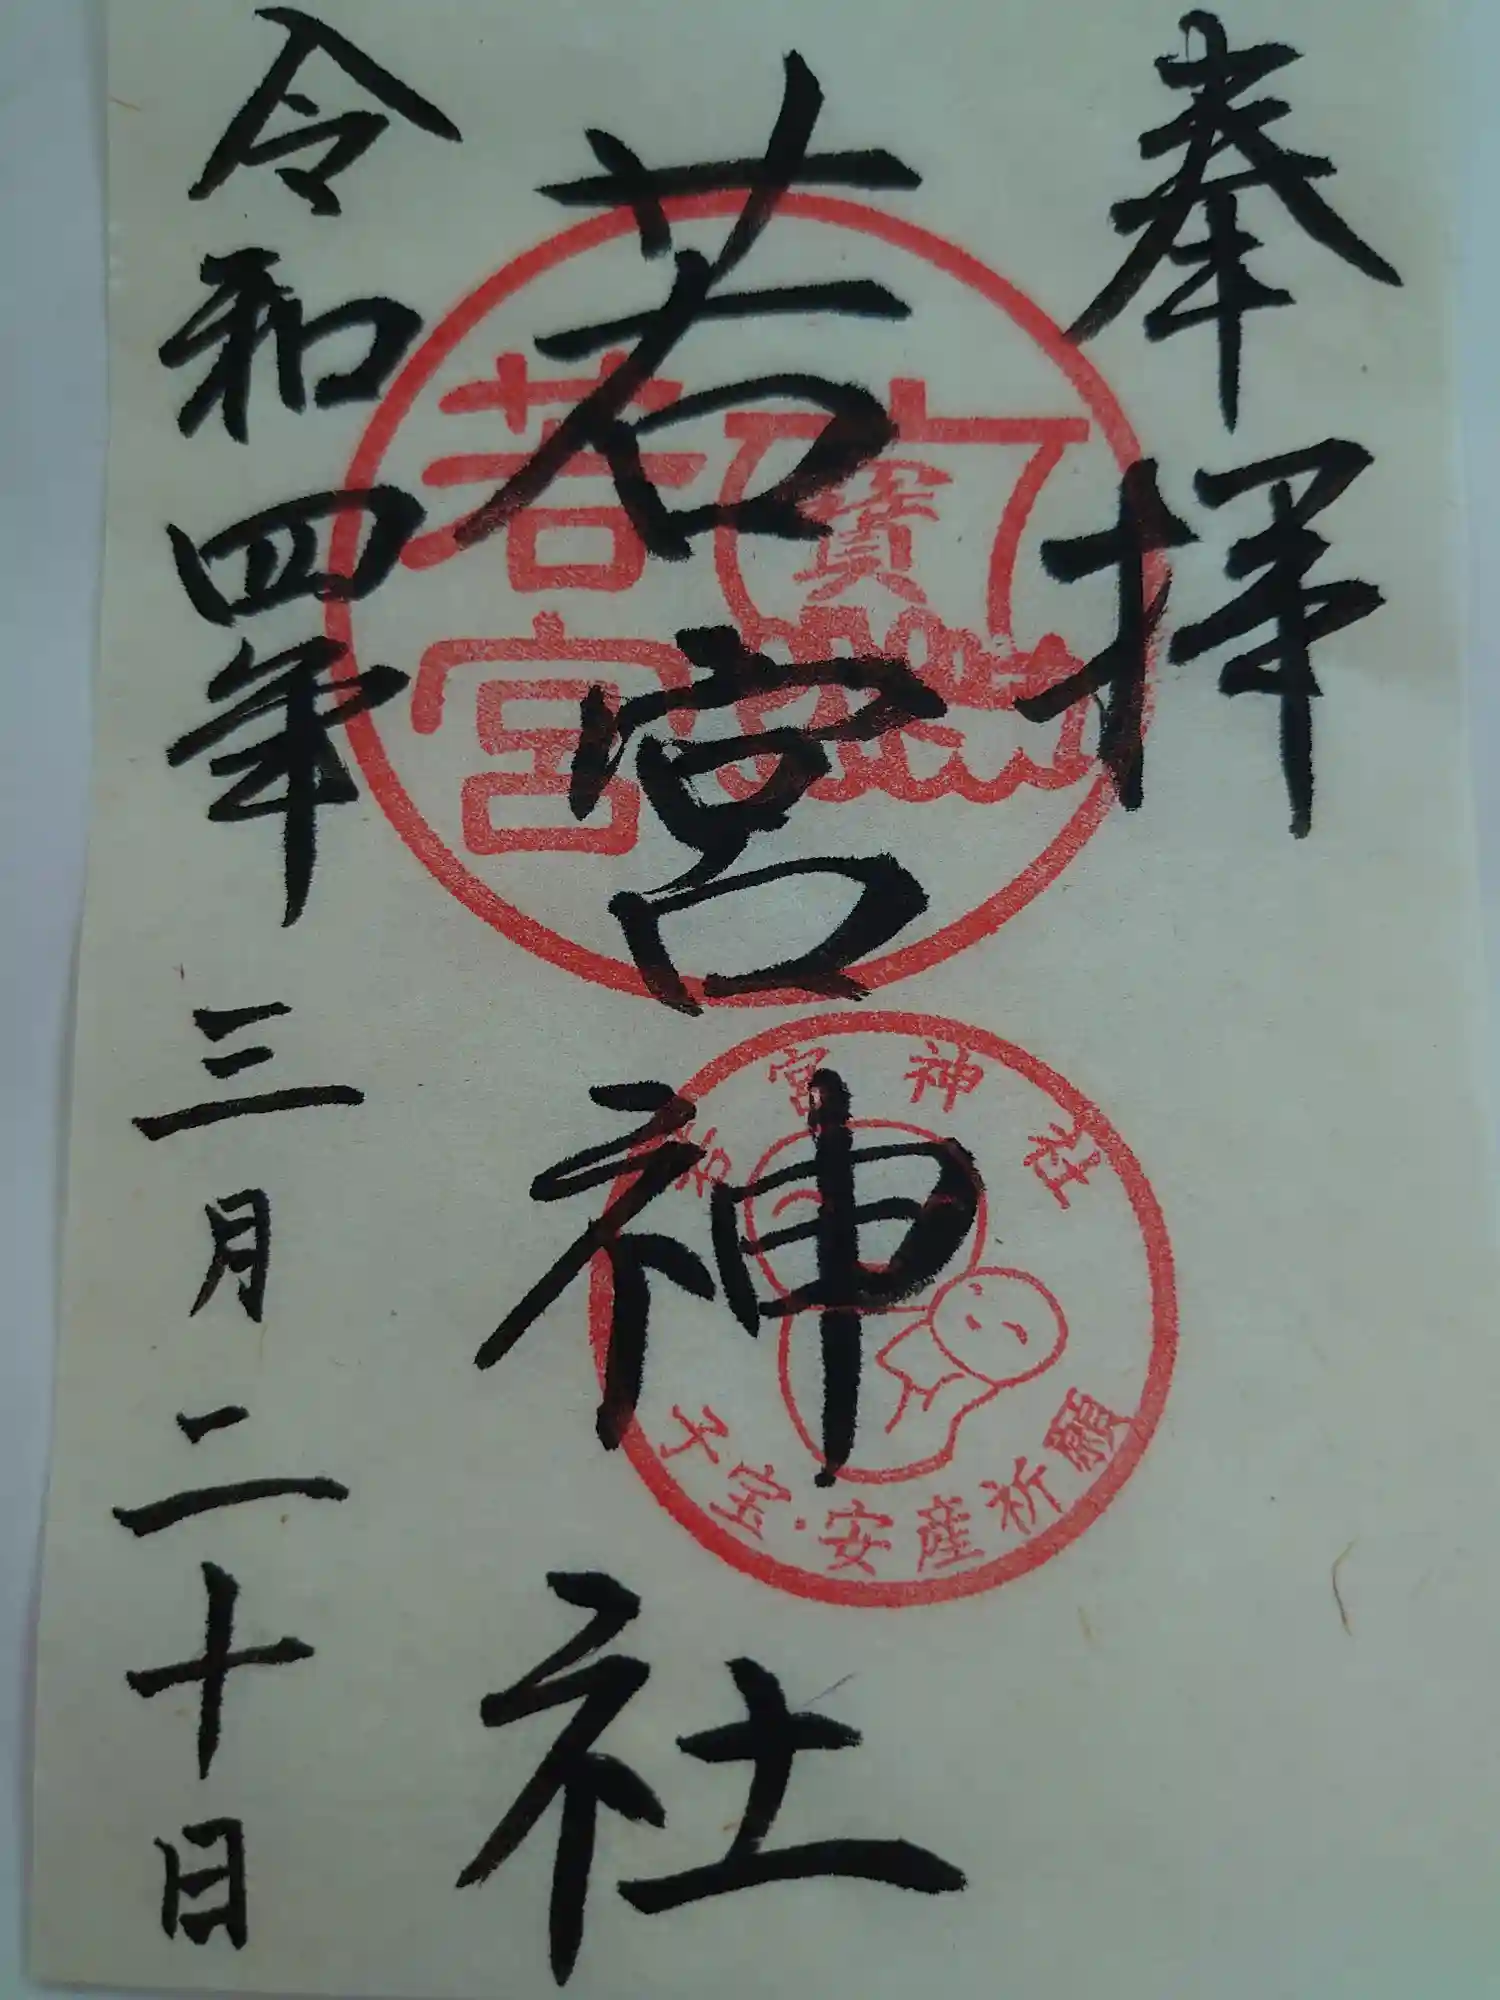 奉拝
若宮神社
令和四年三月二十日
寳
若宮
若宮神社
子宝・安産祈願